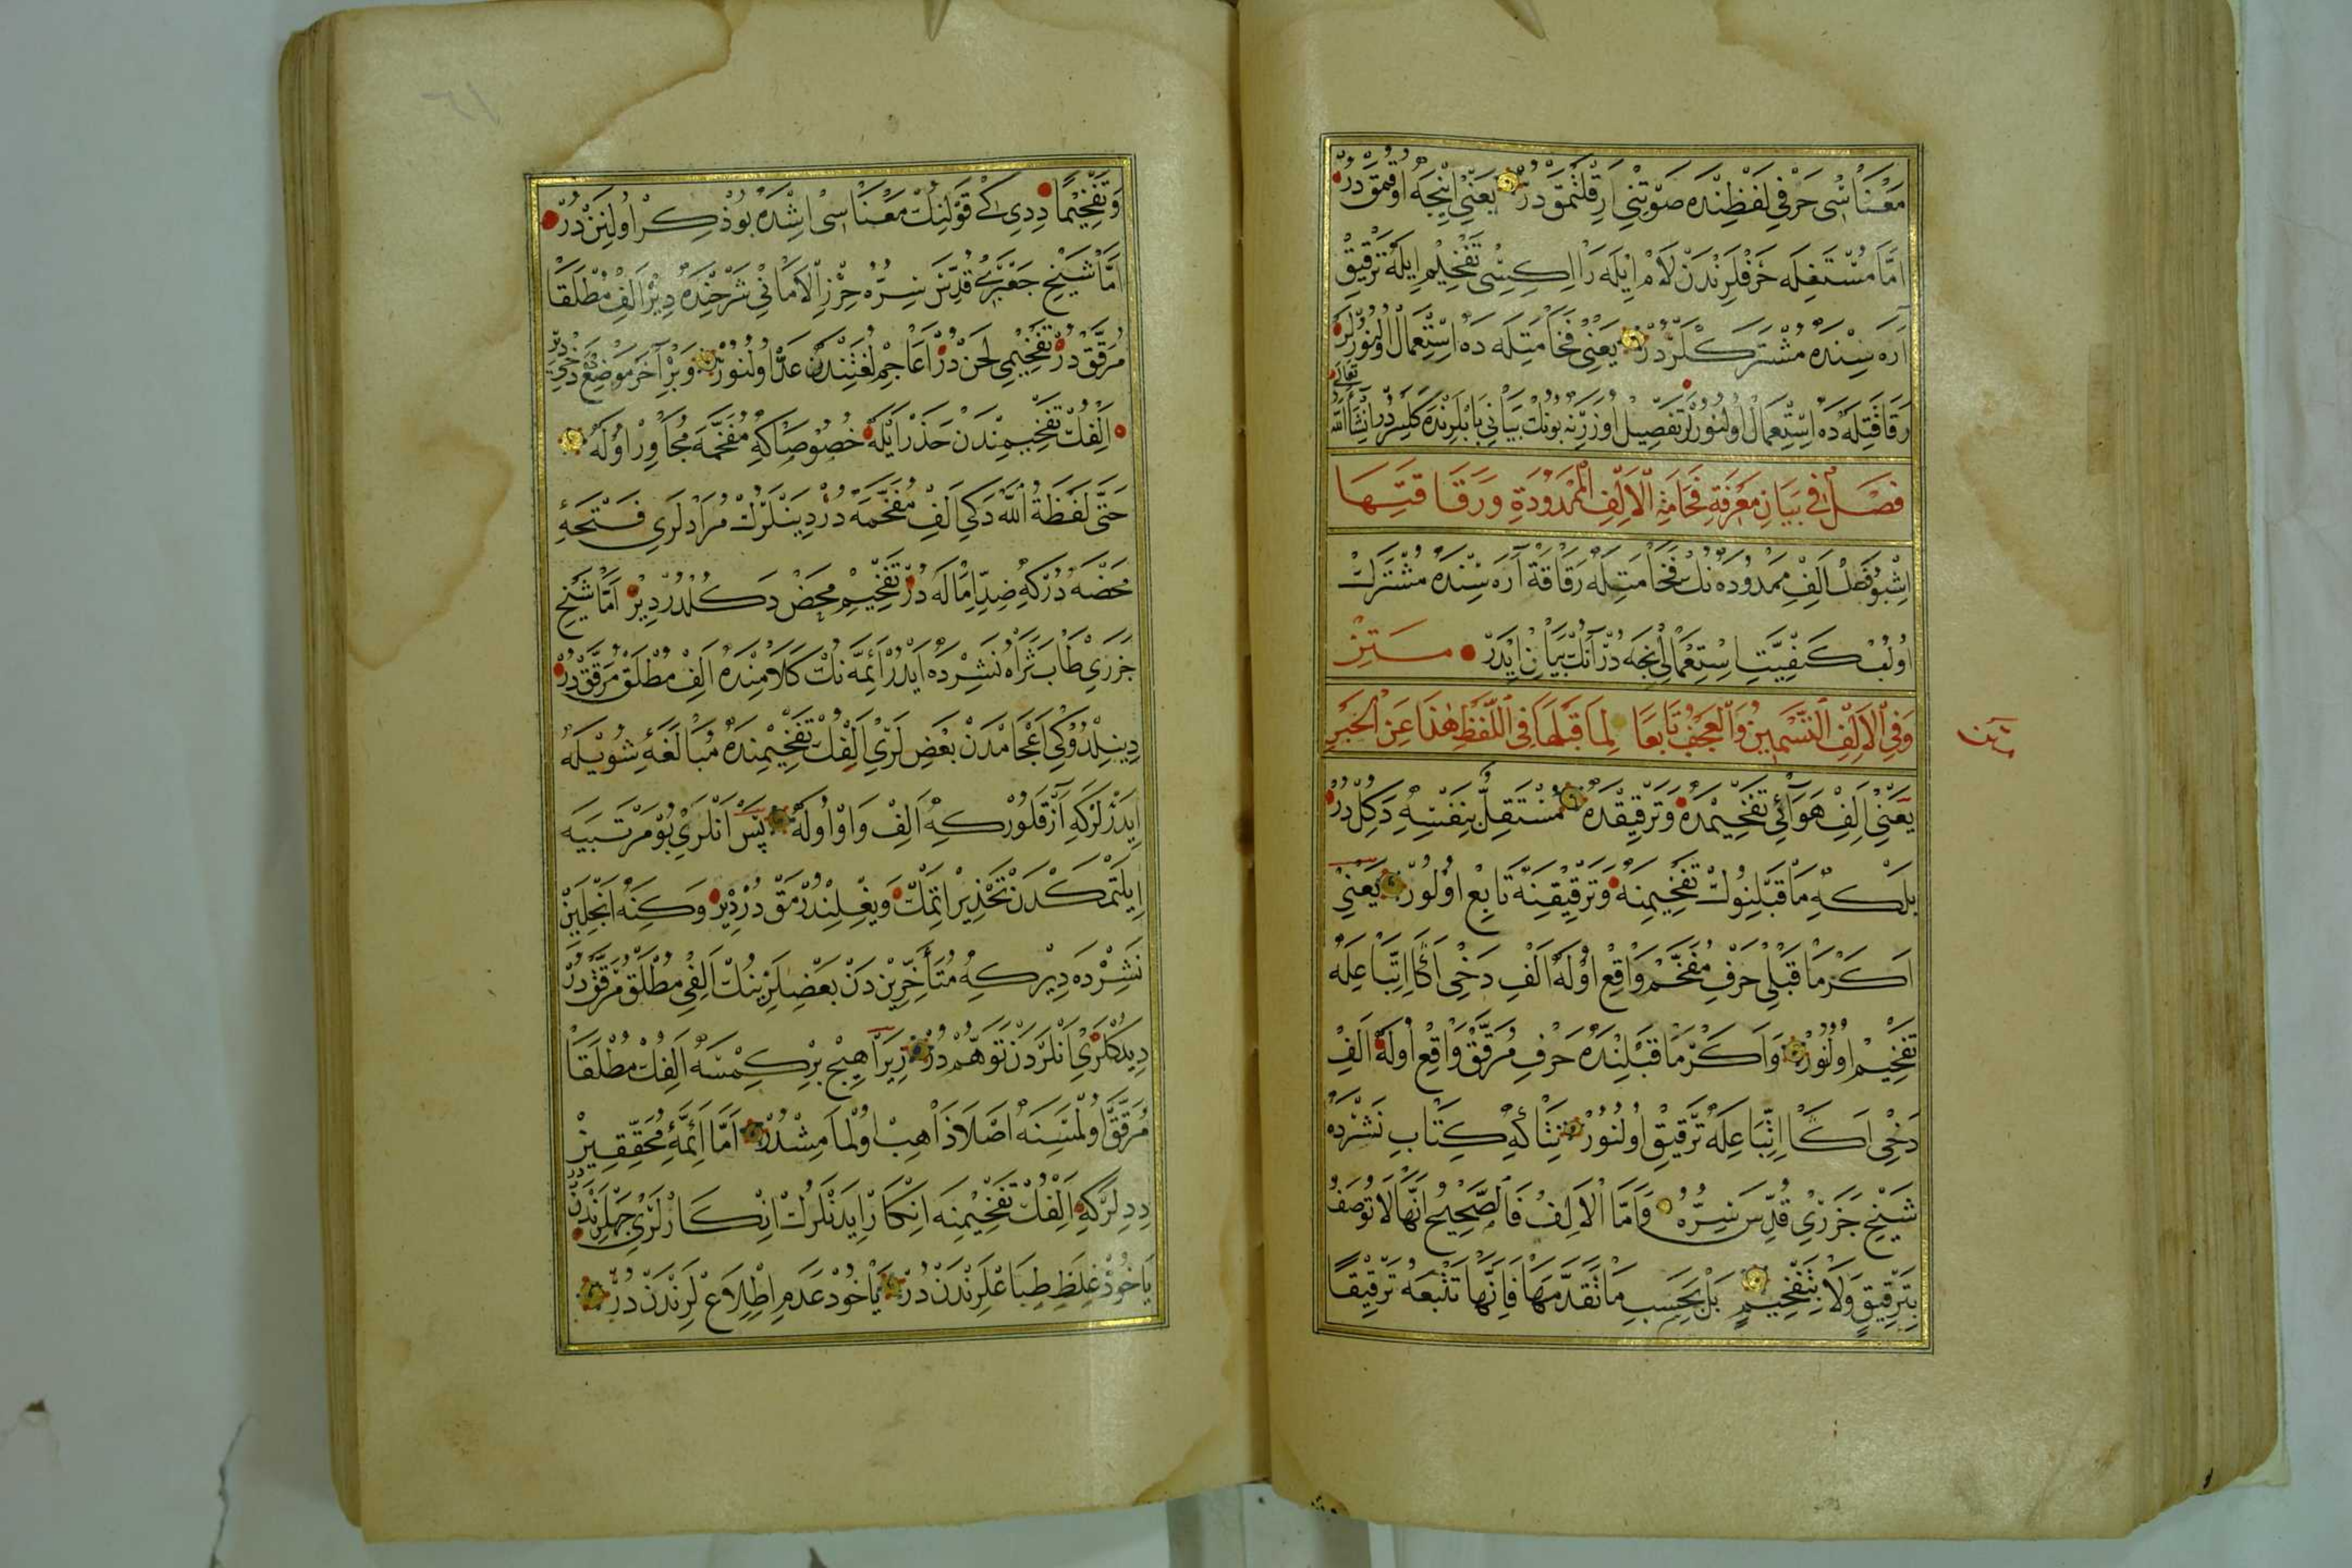 معناسى حرفى لفظنده صوتنى ارقلتمقدر يعنى اينجه اوقمقدر
اما مستفله حرفلرندن لام ايله را ايكسى تفخيم ايله ترقيق
اره سنده مشتركلردر يعنى فخامتله ده استعمال اولنورلر
رقاقتله ده استعمال اولنورلر تفصيل اوزرنه بونك بيانى بابلرنده كلسردر انشاء الله تعالى
فصل فى بيان معرفة فخامة الالف الممدودة ورقاقتها
اشبو فصل الف ممدوده نك فخامتله رقاقة آره سنده مشترك
اولب كيفيت استعمالى نجه در آنك بيانن ايدر متن
وفى الالف التسمين والعجف تابعا لما قبلها فى اللفظ هذا عن الخبر
متن
يعنى الف هوائى تفخيمده وترقيقده مستقل بنفسه دكلدر
بلكه ما قبلنوك تفخيمنه وترقيقنه تابع اولور يعنى
اكر ما قبلى حرف مفخم واقع اوله الف دخى اكا اتباعله
تفخيم اولنور واكر ما قبلنده حرف مرقق واقع اوله الف
دخى اكا اتباعله ترقيق اولنور نتاكه كتاب نشرده
شيخ جزرى قدس سره واما الالف فالصحيح انها لا توصف
بترقيق ولا بتفخيم بل بحسب ما تقدمها فانها تتبعه ترقيقا
وتفخيما ددى كه قولنك معناسى اشده بو ذكر اولنندر
اما شيخ جعبرى قدس سره حرز الامانى شرحنده دير الف مطلقا
مرققدر تفخيمى لحندر اعاجم لغتندن عد اولنور وبر آخر موضعده دخى دير
الفك تفخيمندن حذر ايله خصوصا كه مفخمه مجاور اوله
حتى لفظة الله دكى الف مفخمه در دينلرك مرادلرى فتحه
محضه در كه ضد اماله در تفخيم محض دكلدر دير اما شيخ
جزرى طاب ثراه نشرده ايدر ائمه نك كلامنده الف مطلق مرققدر
دينلدوكى اعجامدن بعضلرى الفك تفخيمنده مبالغه شويله
ايدرلر كه آز قلور كه الف واو اوله پس انلرى بو مرتبه يه
ايلتمكدن تحذير اتمك ويغلندرمقدر دير وكنه انجلين
نشرده دير كه متأخرين دن بعضلرينك الفى مطلق مرققدر
ديدكلرى انلردن توهمدر زيرا هيچ بر كمسه الفك مطلقا
مرقق اولمسنه اصلا ذاهب اولمامشدر اما ائمة محققين
ددلر كه الفك تفخيمنه انكار ايدنلرك انكارلرى جهللرندندر
ياخود غلظ طباعلرندندر ياخود عدم اطلاعلرندندر